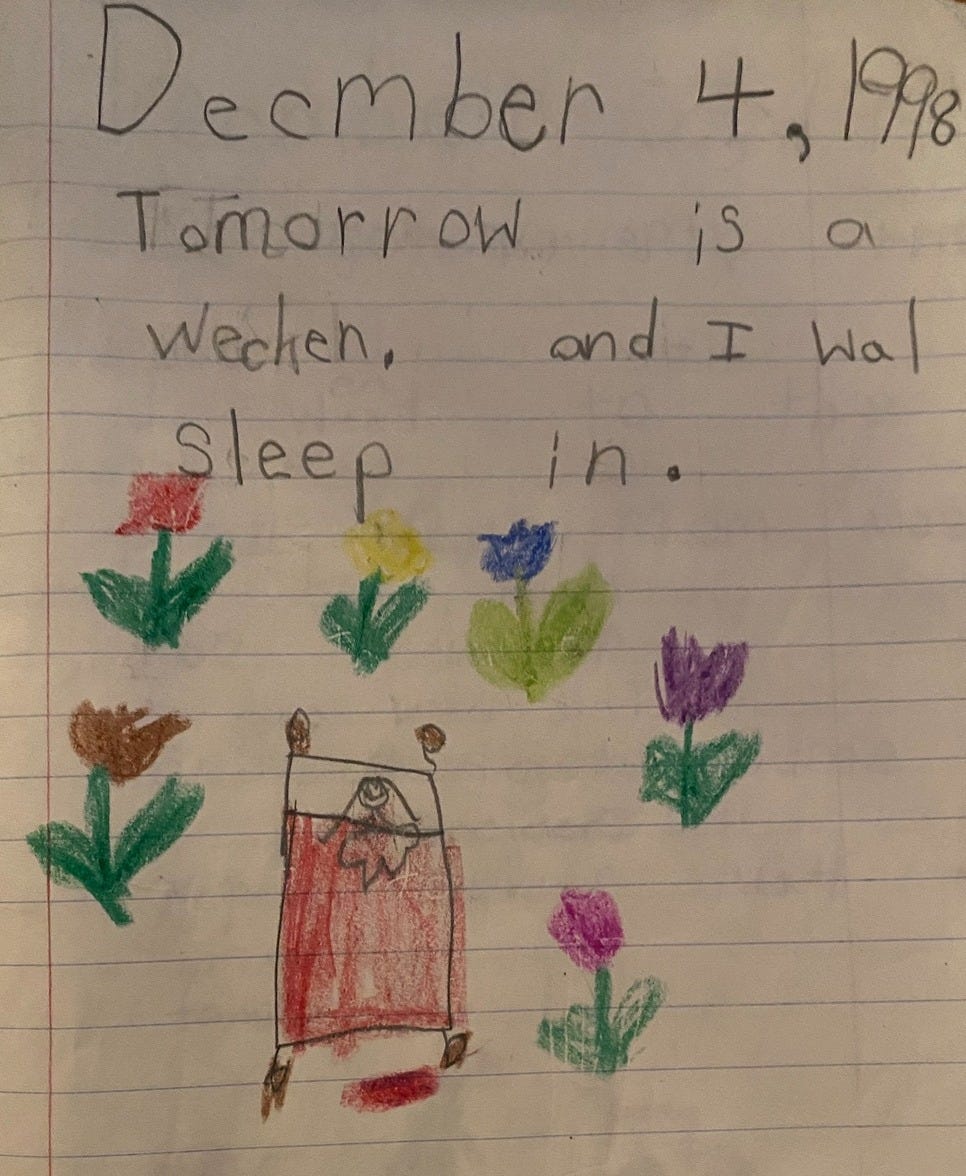 Decmber 4, 1998
Tomorrow is a
wecken. and I wal
sleep in.